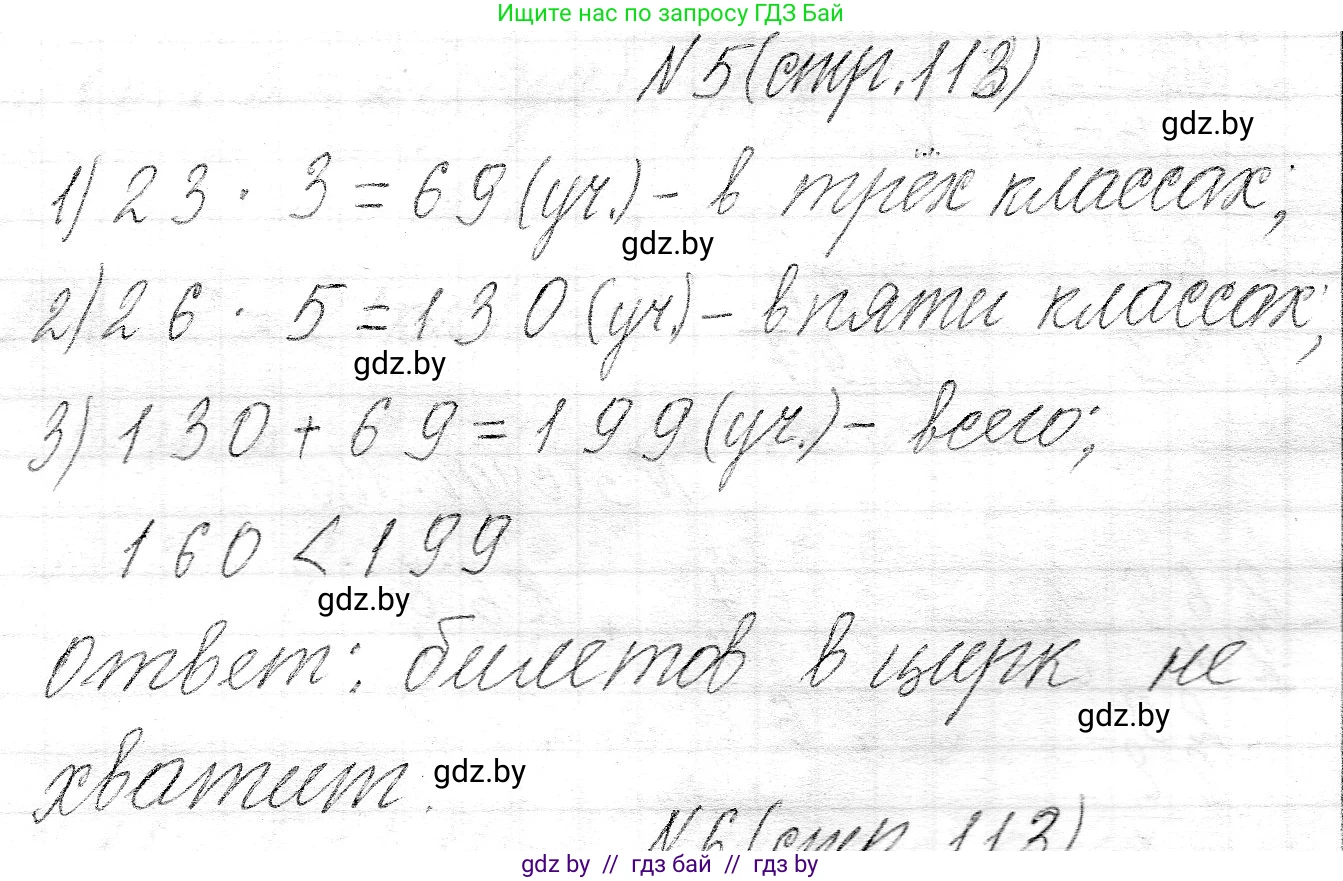 Ищите нас по запросу ГДЗ Бай
N 5 (стр. 113)
gdz.by
1) 23 · 3 = 69 (уч.) - в трёх классах;
gdz.by
2) 26 · 5 = 130 (уч.) - в пяти классах;
gdz.by
3) 130 + 69 = 199 (уч.) - всего;
160 < 199
gdz.by
ответ: билетов в цирк не
gdz.by
хватит.
gdz.by
N 6 (стр. 113)
gdz by // гдз бай // гдз by